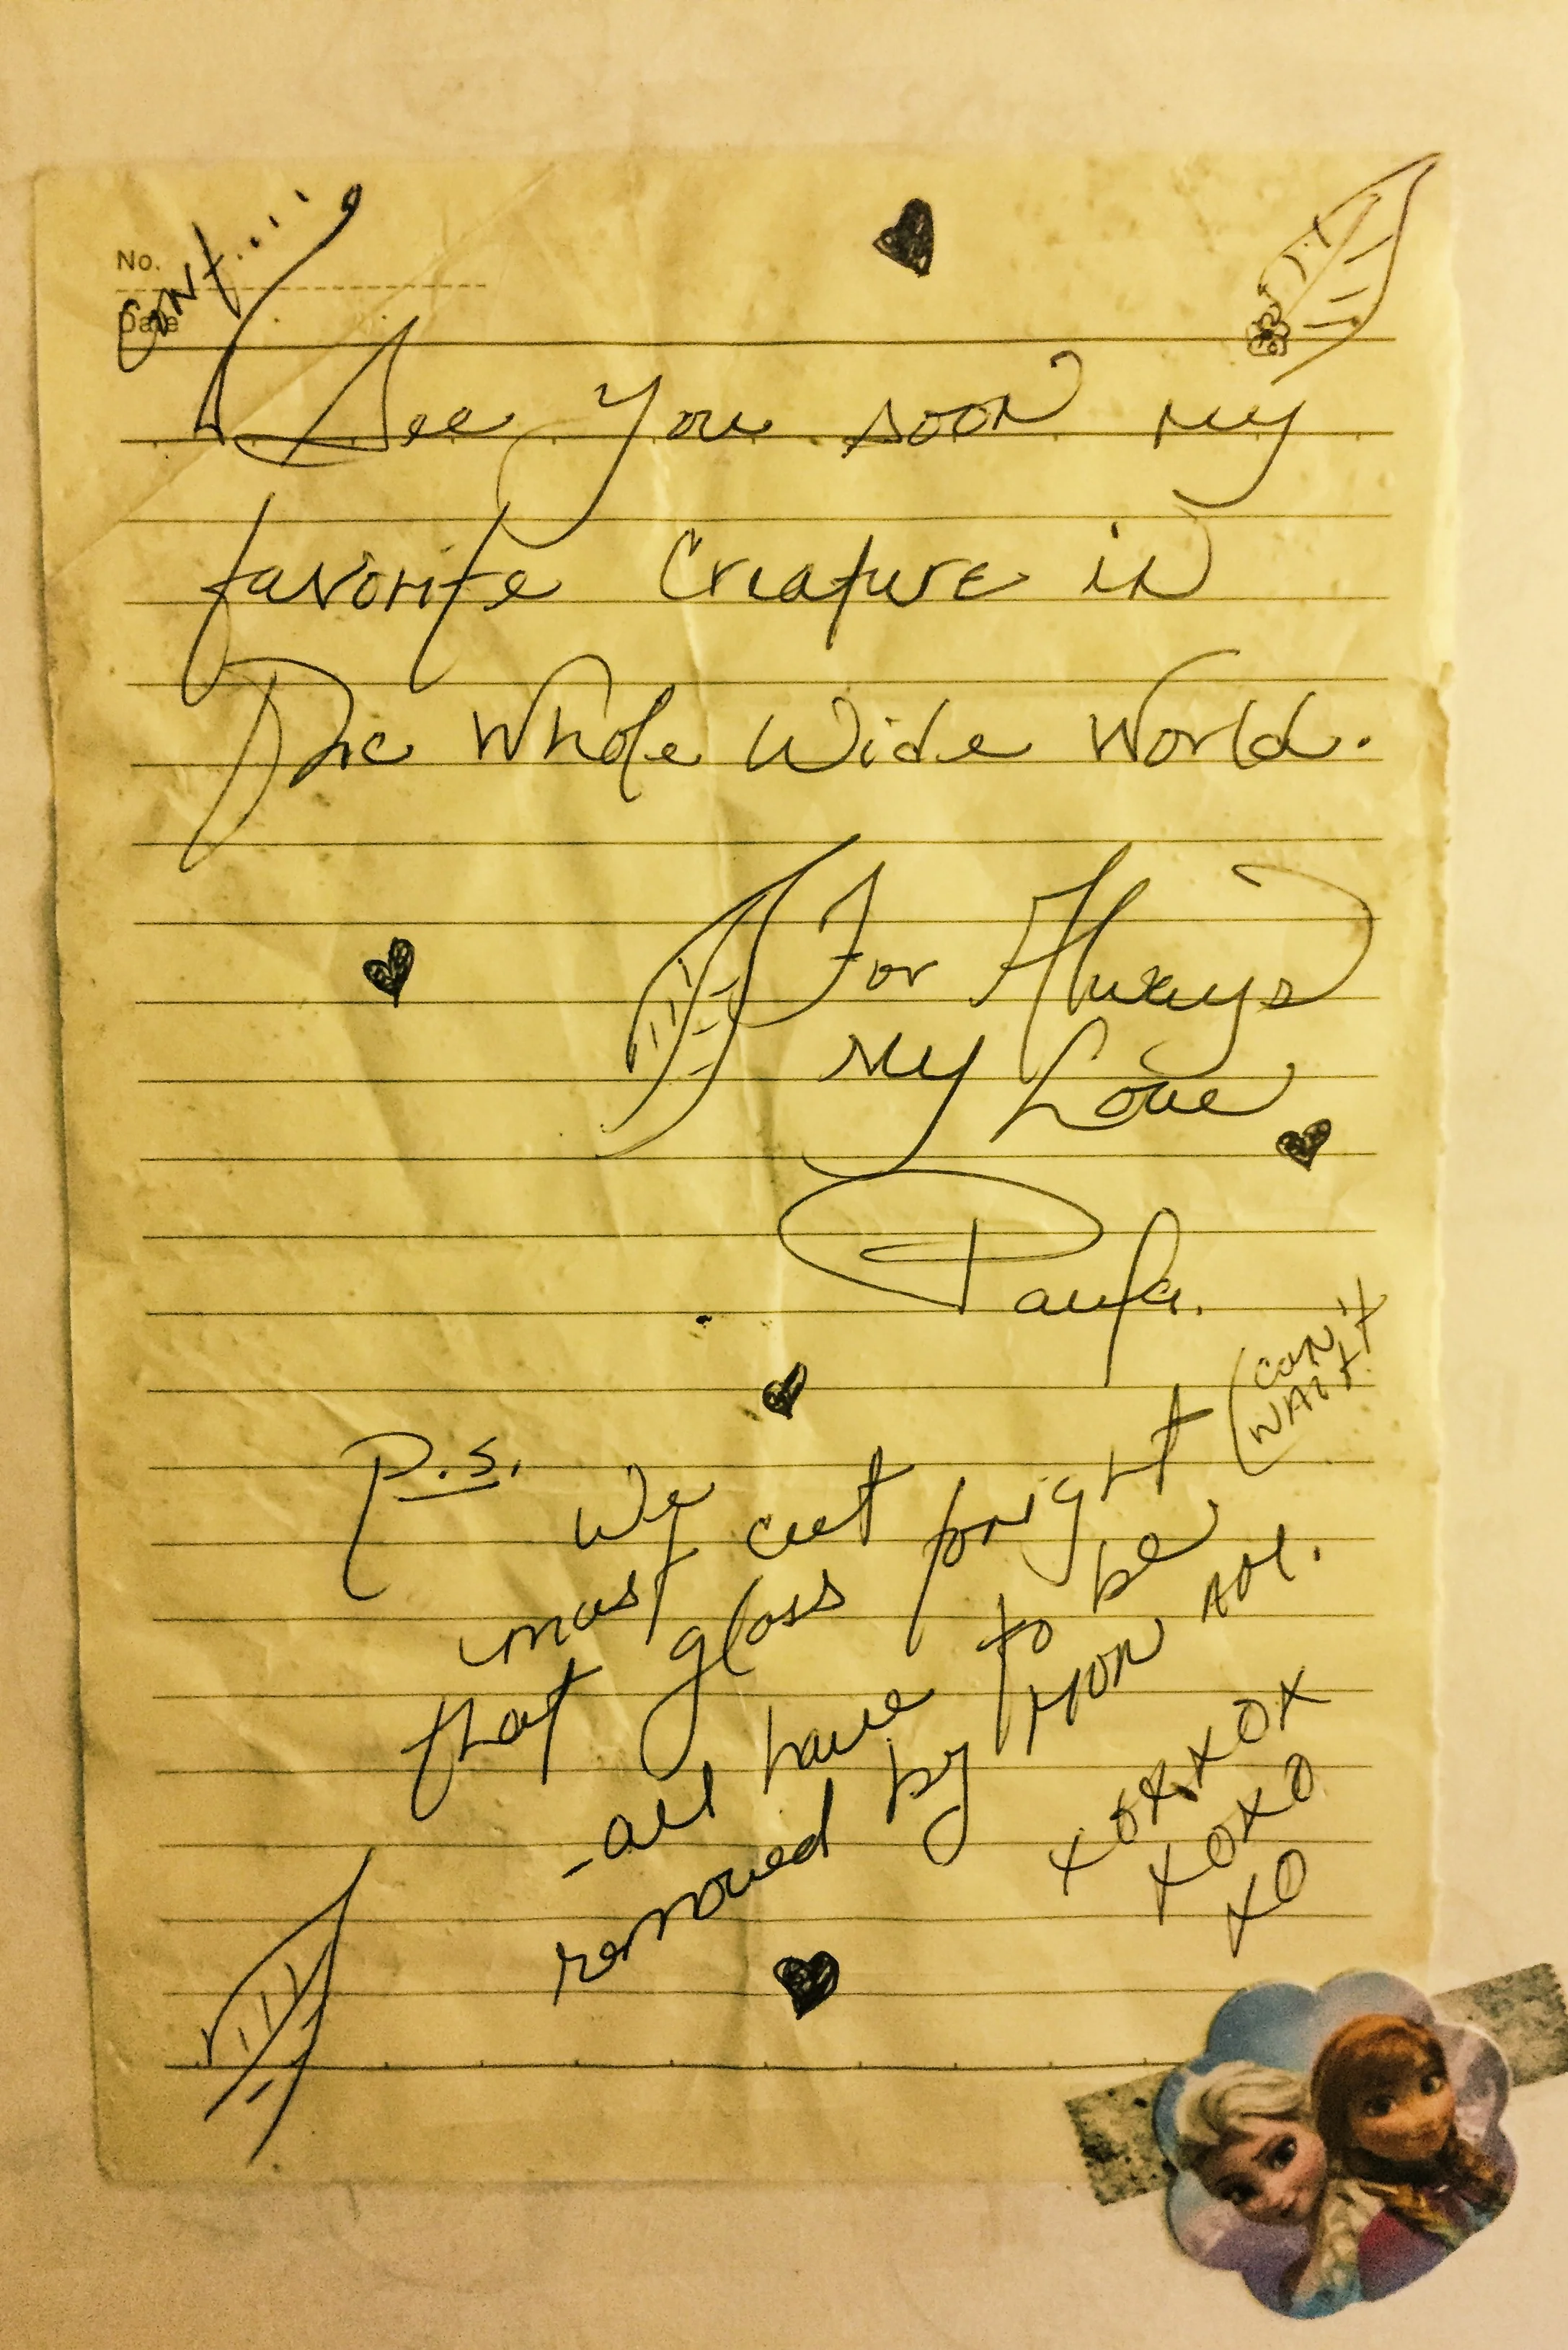 No.
Date
Cont....
See you soon my
favorite Creature in
The Whole Wide World.
For Always
My Love
Paula.
P.S.
(CAN'T
WAIT!
We
must cut
that glass tonight
- all have to be
removed by MON
XOXXOX
XOXO
XO